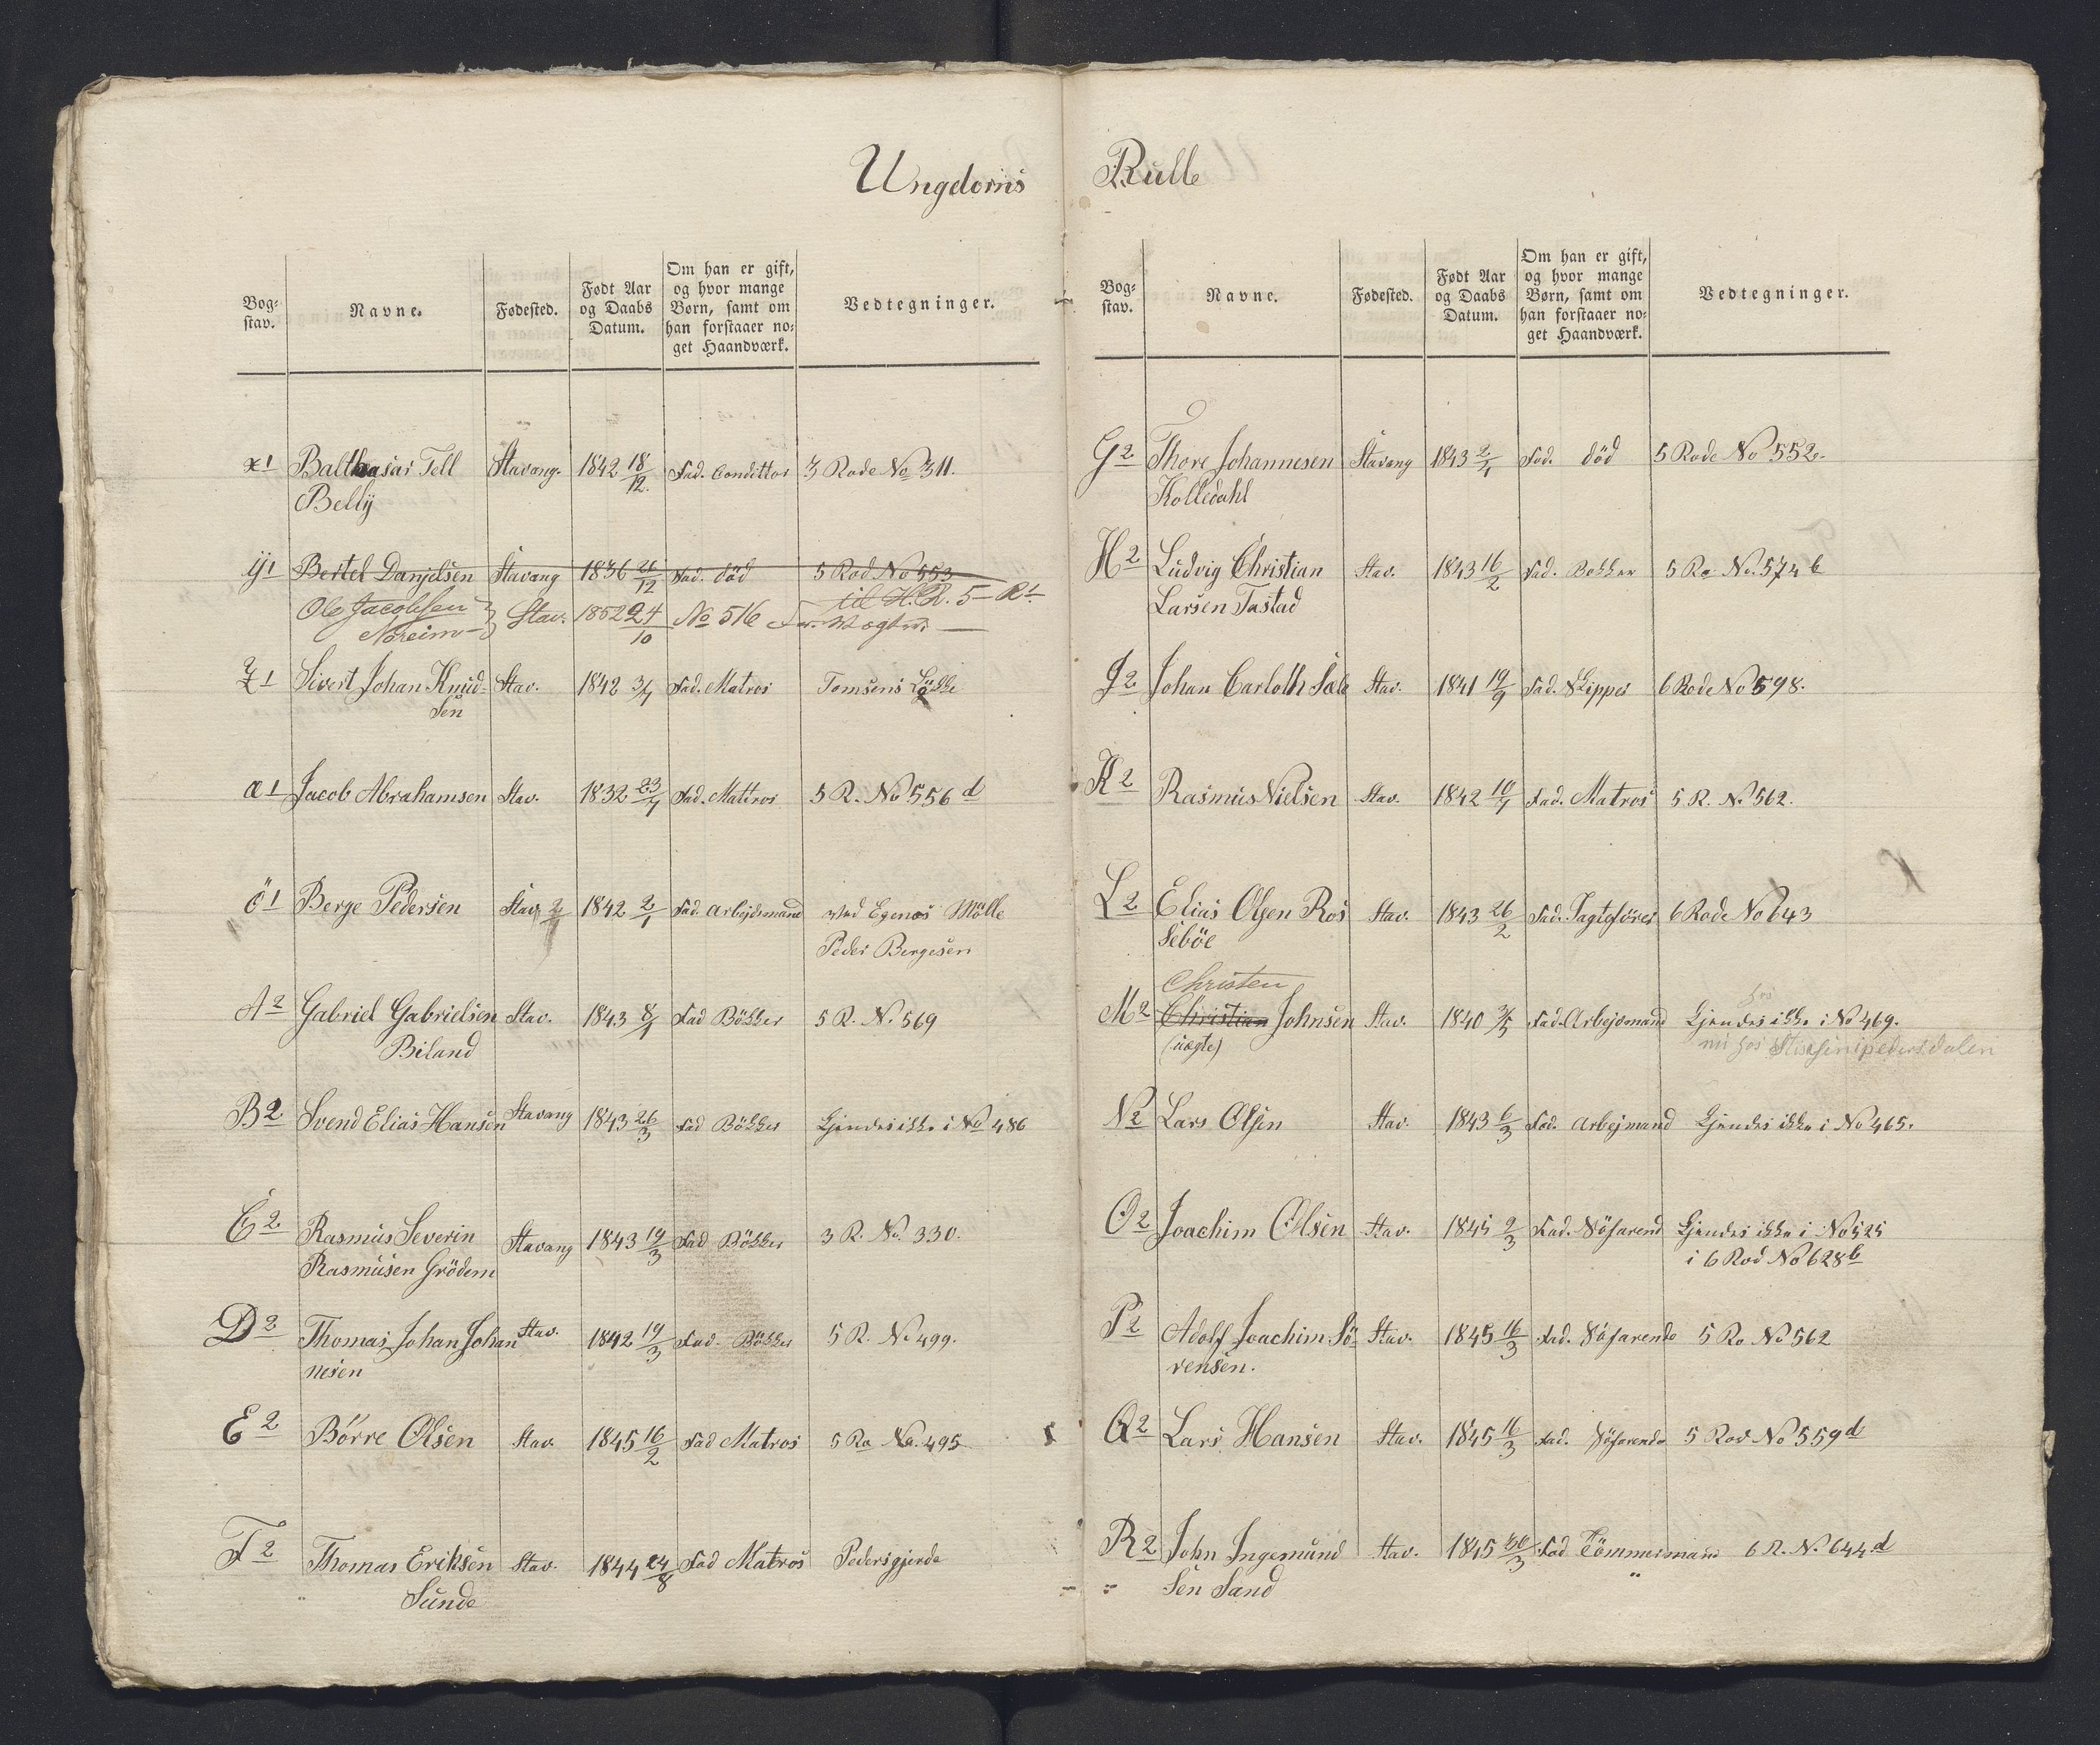 Ungdoms Rulle
Bog-
stav.
Navne.
Fødested.
Født Aar
og Daabs
Datum.
Om han er gift,
og hvor mange
Børn, samt om
han forstaaer no-
get Haandværk.
Vedtegninger.
x1 Balthasar Tell Stavang. 1842 18/12. Fad. Condittor 3 Rode No 311.
Bellÿ
ÿ1 Bertel Danjelsen Stavang 1836 21/12 Fad. död 5 Rod No 553
til H.R. 5- R1.
Ole Jacobsen Stav. 1852 24/10 No 516
Noreim
z1 Sivert Johan Knud- Stav. 1842 3/4 Fad. Matros Tomsens Lökke
sen
æ1 Jacob Abrahamsen Stav. 1832 23/4 Fad. Mattros 5 R. No 556 d
ö1 Berge Pedersen Stav. 2/1 1842 2/1 Fad. Arbejdsmand ved Egenes Mölle
Peder Bergesen
A2 Gabriel Gabrielsen Stav. 1843 8/1 Fad Bökker 5 R. No. 569
Biland
B2 Svend Elias Hansen Stavang 1843 26/3 Fad Bökker Kjendes ikke i No 486
C2 Rasmus Severin Stavang 1843 19/3 Fad Bökker 3 R. No. 330.
Rasmusen Grödem
D2 Thomas Johan Johan Stav. 1842 19/3 Fad. Bökker 5 R. No 499.
nesen
E2 Börre Olsen Stav. 1845 16/2 Fad Matros 5 Ro No. 495
F2 Thomas Eriksen Stav. 1844 24/8 Fad Matros Pedersgjerde
Sunde
Bog-
stav.
Navne.
Fødested.
Født Aar
og Daabs
Datum.
Om han er gift,
og hvor mange
Børn, samt om
han forstaaer no-
get Haandværk.
Vedtegninger.
G2 Thore Johannesen Stavang 1843 2/4 Fad. död 5 Rode No 552.
Kolledahl
H2 Ludvig Christian Stav. 1843 16/2 Fad. Bokker 5 Ro No. 574 b
Larsen Tastad
J2 Johan Carloth Sæle Stav. 1841 19/9 Fad. Skipper 6 Rode No 598.
K2 Rasmus Nielsen Stav. 1842 10/4 Fad. Matros 5 R. No. 562.
L2 Elias Olsen Ros Stav. 1843 26/2 Fad. Jagtförer 6 Rode No 643
seböe
Christen
M2 Christian Johnsen Stav. 1840 3/5 Fad. Arbejdsmand Kjendes ikke i No 469.
(uægte) nu hos
N2 Lars Olsen Stav. 1843 6/3 Fad. Arbejmand Kjendes ikke i No 465.
O2 Joachim Olsen Stav. 1845 2/3 Fad. Söfarend Kjendes ikke i No 525
i 6 Rod No 628 b
P2 Adolf Joachim Sö- Stav. 1845 16/3 Fad. Söfarende 5 Ro No 562
rensen.
Q2 Lars Hansen Stav. 1845 16/3 Fad. Söfarende 5 Rod No 559 d
R2 John Ingemund Stav. 1845 30/3 Fad Tömmermand 6 R. No. 644 d
sen Sand